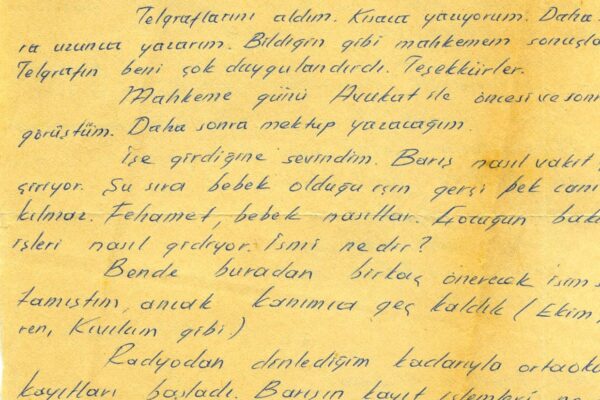 Telgraflarını aldım. Kısaca yazıyorum. Daha
ra uzunca yazarım. Bildiğin gibi mahkemem sonuçla
Telgrafın beni çok duygulandırdı. Teşekkürler.
Mahkeme günü Avukat ile öncesi ve sonr
görüştüm. Daha sonra mektup yazacağım.
İşe girdiğine sevindim. Barış nasıl vakit
giriyor. Şu sıra bebek olduğu için gerçi pek canı
kılmaz. Fehamet, bebek nasıllar. Çocuğun bakı
işleri nasıl gidiyor. İsmi nedir?
Bende buradan birkaç önerecek isim s
tamıştım, ancak kanımca geç kaldık (Ekim,
ren, Kıvılcım gibi)
Radyodan dinlediğim kadarıyla ortaoku
kayıtları başladı. Barışın kayıt işlemleri ne